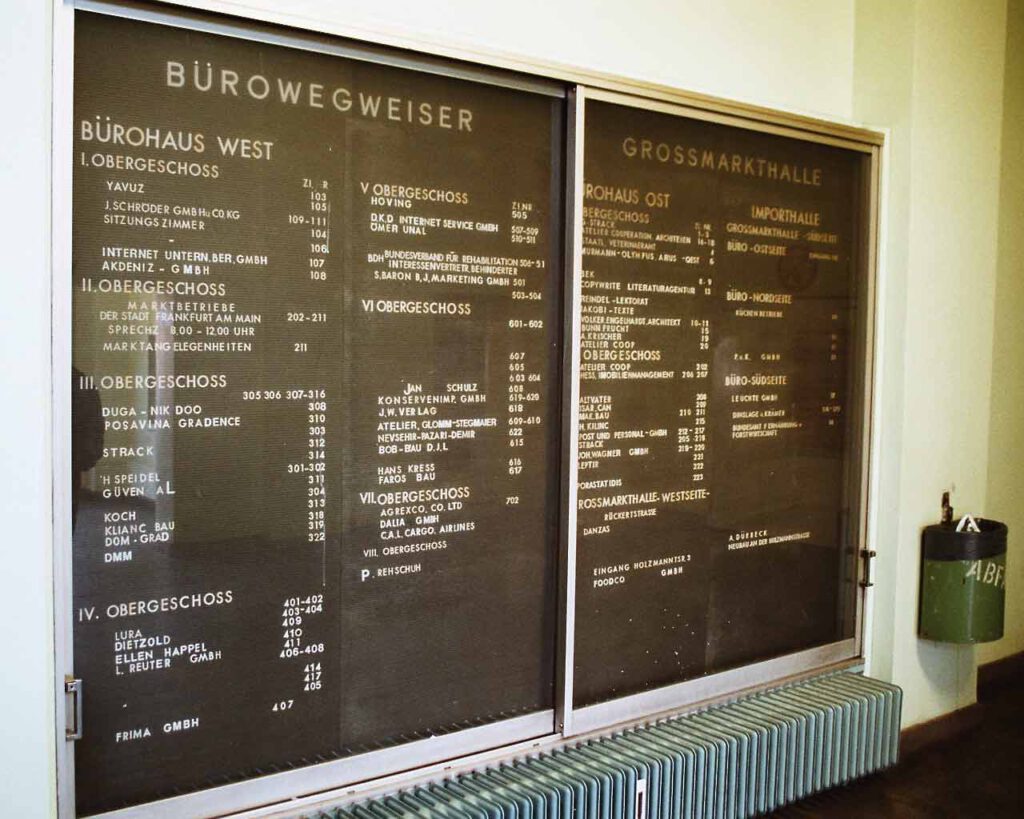 BÜROWEGWEISER
BÜROHAUS WEST
I. OBERGESCHOSS
ZI. R
YAVUZ 103
105
J. SCHRÖDER GMBH u. CO. KG 109-111
SITZUNGSZIMMER 104
106
INTERNET UNTERN. BER, GMBH 107
AKDENIZ - GMBH 108
II. OBERGESCHOSS
MARKTBETRIEBE
DER STADT FRANKFURT AM MAIN 202-211
SPRECHZ. 8.00 - 12.00 UHR
MARKTANGELEGENHEITEN 211
III. OBERGESCHOSS
305 306 307-316
DUGA - NIK DOO 308
POSAVINA GRADENCE 310
303
312
STRACK 314
301-302
H SPEIDEL 311
GÜVEN aL 304
313
KOCH 318
KLIANC BAU 319
DOM-GRAD 322
DMM
IV. OBERGESCHOSS 401-402
403-404
409
LURA 410
DIETZOLD 411
ELLEN HAPPEL 406-408
L. REUTER GMBH
414
417
405
407
FRIMA GMBH
V OBERGESCHOSS
HOVING ZI.NR
505
D.K.D INTERNET SERVICE GMBH 507-509
ÖMER UNAL 510-511
BDH BUNDESVERBAND FÜR REHABILITATION 506-51
INTERESSENVERTRETR, BEHINDERTER
S, BARON B, J, MARKETING GMBH 501
503-504
VI OBERGESCHOSS
601-602
607
605
603 604
JAN SCHULZ 608
KONSERVENIMP, GMBH 619-620
J. W. VERLAG 618
ATELIER, GLOMM-STEGMAIER 609-610
NEVSEHIR-PAZARI-DEMIR 622
BOB-BAU D.I.L 615
HANS KRESS 616
FAROS BAU 617
VII. OBERGESCHOSS 702
AGREXCO, CO. LTD
DALIA GMBH
C.A.L. CARGO. AIRLINES
VIII. OBERGESCHOSS
P. REHSCHUH
GROSSMARKTHALLE
ÜROHAUS OST
BERGESCHOSS
STRACK ZI. NR.
ATELIER COOPERATION, ARCHITEKEN 16-18
STAATL, VETERINAERAMT
BEK 8-9
COPYWRITE LITERATURAGENTUR 13
REINDEL-LEKTORAT
JAKOBI-TEXTE
VOLKER ENGELHARDT, ARCHITEKT 10-11
BUNN FRUCHT 15
A. KRISCHER 19
ATELIER COOP 20
OBERGESCHOSS
ATELIER COOP 202
HESS, IMOBILIENMANAGEMENT 206 207
ALTVATER 208
ISAR, CAN 209
MAK, BAU 210 211
H. KILINC 215
POST UND PERSONAL-GMBH 212-217
STRACK 205-218
JOH, WAGNER GMBH 219-220
LEPTIR 221
222
PORASTATIDIS 223
ROSSMARKTHALLE-WESTSEITE-
RÜCKERTSTRASSE
DANZAS
EINGANG HOLZMANNTSR. 3
FOODCO GMBH
IMPORTHALLE
GROSSMARKTHALLE - SÜDSEITE
BÜRO - OSTSEITE
BÜRO - NORDSEITE
KÜCHEN BETRIEBE
P.u.K. GMBH
BÜRO-SÜDSEITE
LEUCHTE GMBH
DINSLAGE u. KRÄMER
BUNDESAMT F. ERNÄHRUNG u.
FORSTWIRTSCHAFT
A. DÜRBECK
NEUBAU AN DER HOLZMANNSTRASSE
ABF